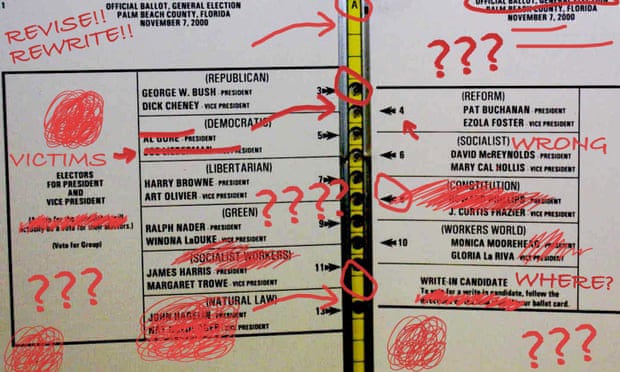 1
OFFICIAL BALLOT, GENERAL ELECTION
PALM BEACH COUNTY, FLORIDA
NOVEMBER 7, 2000
REVISE!!
REWRITE!!
(REPUBLICAN)
GEORGE W. BUSH - PRESIDENT
DICK CHENEY - VICE PRESIDENT
3
(DEMOCRATIC)
AL GORE - PRESIDENT
JOE LIEBERMAN - VICE PRESIDENT
5
VICTIMS
(LIBERTARIAN)
HARRY BROWNE - PRESIDENT
ART OLIVIER - VICE PRESIDENT
7
ELECTORS
FOR PRESIDENT
AND
VICE PRESIDENT
(Vote for Group)
(GREEN)
RALPH NADER - PRESIDENT
WINONA LaDUKE - VICE PRESIDENT
9
????
(SOCIALIST WORKERS)
JAMES HARRIS - PRESIDENT
MARGARET TROWE - VICE PRESIDENT
11
???
(NATURAL LAW)
JOHN HAGELIN - PRESIDENT
VICE PRESIDENT
13
A
OFFICIAL BALLOT, GENERAL ELECTION
PALM BEACH COUNTY, FLORIDA
NOVEMBER 7, 2000
???
(REFORM)
4 PAT BUCHANAN - PRESIDENT
EZOLA FOSTER - VICE PRESIDENT
(SOCIALIST)
WRONG
6 DAVID McREYNOLDS - PRESIDENT
MARY CAL HOLLIS - VICE PRESIDENT
(CONSTITUTION)
PHILLIPS - PRESIDENT
J. CURTIS FRAZIER - VICE PRESIDENT
(WORKERS WORLD)
10 MONICA MOOREHEAD - PRESIDENT
GLORIA La RIVA - VICE PRESIDENT
WRITE-IN CANDIDATE
WHERE?
To vote for a write-in candidate, follow the
your ballot card.
???